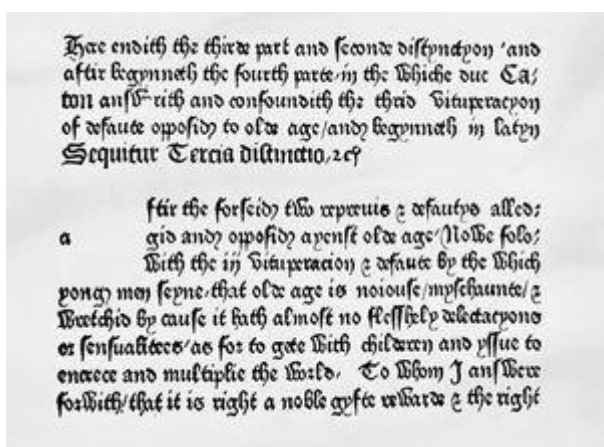 Here endith the thirde part and seconde distynctyon 'and
aftir begynneth the fourth parte/in the Whiche duc Ca;
ton answerith and confoundith the thrid Vituperacyon
of defaute opposid to olde age/and begynneth in latyn
Sequitur Tercia distinctio,⁊cꝭ
ftir the forseid two repreuis ⁊ defautys alled;
a gid and opposid ayenst olde age/Nowe folo;
With the iij Vituperacion ⁊ defaute by the Which
yong men seyne,that olde age is noiouse/myschaunte/⁊
Wretchid by cause it hath almost no flesshely delectacyons
or sensualitees/as for to gete With childeren and yssue to
encrece and multiplie the World. To Whom I answere
forWith/that it is right a noble gyfte rewarde ⁊ the right